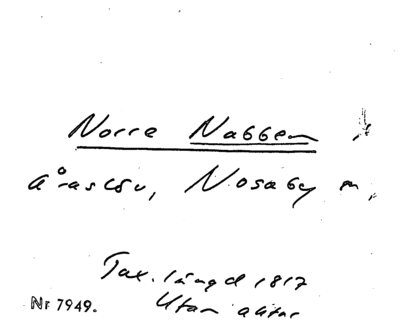 Norre Nabben
Åraslöv, Nosaby m,
Tax. längd 1817
Nr 7949. Utan akter